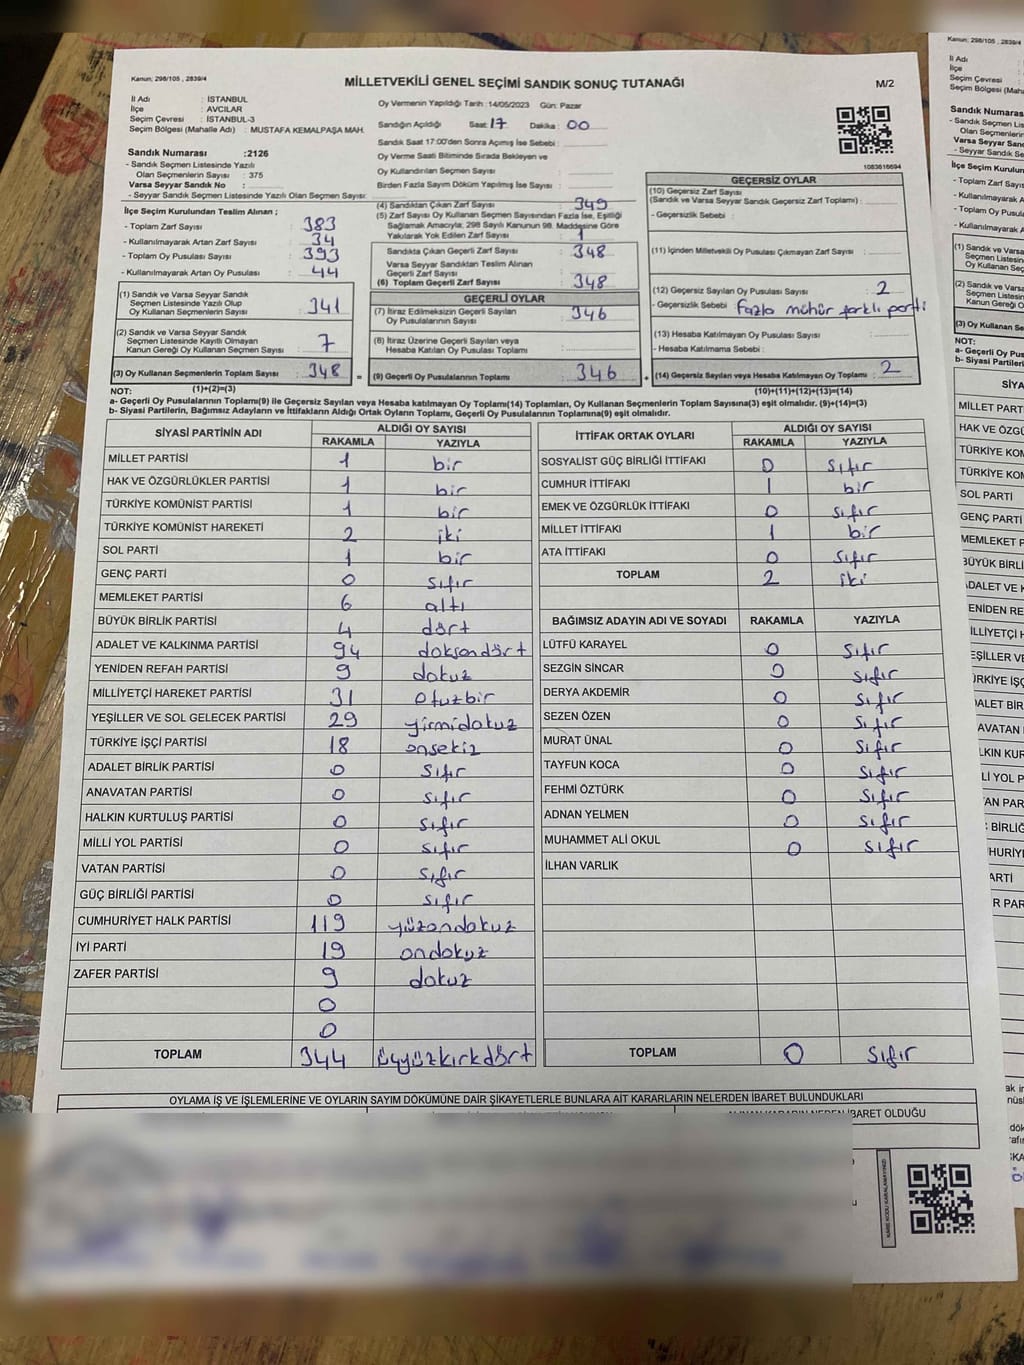 Kanun; 298/105 , 2839/4
MİLLETVEKİLİ GENEL SEÇİMİ SANDIK SONUÇ TUTANAĞI
M/2
İl Adı : İSTANBUL
İlçe : AVCILAR
Seçim Çevresi : İSTANBUL-3
Seçim Bölgesi (Mahalle Adı) : MUSTAFA KEMALPAŞA MAH.
Oy Vermenin Yapıldığı Tarih :14/05/2023 Gün: Pazar
Sandığın Açıldığı Saat: 17 Dakika : 00
Sandık Saat 17:00'den Sonra Açımış İse Sebebi :
Oy Verme Saati Bitiminde Sırada Bekleyen ve
Oy Kullandırılan Seçmen Sayısı :
Birden Fazla Sayım Döküm Yapılmış İse Sayısı :
1083616694
Sandık Numarası :2126
- Sandık Seçmen Listesinde Yazılı
Olan Seçmenlerin Sayısı : 375
Varsa Seyyar Sandık No :
- Seyyar Sandık Seçmen Listesinde Yazılı Olan Seçmen Sayısı:
İlçe Seçim Kurulundan Teslim Alınan ;
- Toplam Zarf Sayısı : 383
- Kullanılmayarak Artan Zarf Sayısı : 34
- Toplam Oy Pusulası Sayısı : 393
- Kullanılmayarak Artan Oy Pusulası : 44
(1) Sandık ve Varsa Seyyar Sandık
Seçmen Listesinde Yazılı Olup
Oy Kullanan Seçmenlerin Sayısı : 341
(2) Sandık ve Varsa Seyyar Sandık
Seçmen Listesinde Kayıtlı Olmayan
Kanun Gereği Oy Kullanan Seçmen Sayısı : 7
(3) Oy Kullanan Seçmenlerin Toplam Sayısı : 348 =
(1)+(2)=(3)
(4) Sandıktan Çıkan Zarf Sayısı : 349
(5) Zarf Sayısı Oy Kullanan Seçmen Sayısından Fazla İse, Eşitliği
Sağlamak Amacıyla; 298 Sayılı Kanunun 98. Maddesine Göre
Yakılarak Yok Edilen Zarf Sayısı : 1
Sandıkta Çıkan Geçerli Zarf Sayısı : 348
Varsa Seyyar Sandıktan Teslim Alınan
Geçerli Zarf Sayısı :
(6) Toplam Geçerli Zarf Sayısı : 348
GEÇERLİ OYLAR
(7) İtiraz Edilmeksizin Geçerli Sayılan
Oy Pusulalarının Sayısı : 346
(8) İtiraz Üzerine Geçerli Sayılan veya
Hesaba Katılan Oy Pusulası Toplamı :
(9) Geçerli Oy Pusulalarının Toplamı : 346 +
GEÇERSİZ OYLAR
(10) Geçersiz Zarf Sayısı
(Sandık ve Varsa Seyyar Sandık Geçersiz Zarf Toplamı) :
- Geçersizlik Sebebi :
(11) İçinden Milletvekili Oy Pusulası Çıkmayan Zarf Sayısı :
(12) Geçersiz Sayılan Oy Pusulası Sayısı : 2
- Geçersizlik Sebebi : Fazla mühür farklı parti
(13) Hesaba Katılmayan Oy Pusulası Sayısı :
- Hesaba Katılmama Sebebi :
(14) Geçersiz Sayılan veya Hesaba Katılmayan Oy Toplamı : 2
(10)+(11)+(12)+(13)=(14)
NOT:
a- Geçerli Oy Pusulasının Toplamı(9) ile Geçersiz Sayılan veya Hesaba katılmayan Oy Toplamı(14) Toplamları, Oy Kullanan Seçmenlerin Toplam Sayısına(3) eşit olmalıdır. (9)+(14)=(3)
b- Siyasi Partilerin, Bağımsız Adayların ve İttifakların Aldığı Ortak Oyların Toplamı, Geçerli Oy Pusulalarının Toplamına(9) eşit olmalıdır.
SİYASİ PARTİNİN ADI ALDIĞI OY SAYISI
RAKAMLA YAZIYLA
MİLLET PARTİSİ 1 bir
HAK VE ÖZGÜRLÜKLER PARTİSİ 1 bir
TÜRKİYE KOMÜNİST PARTİSİ 1 bir
TÜRKİYE KOMÜNİST HAREKETİ 2 iki
SOL PARTİ 1 bir
GENÇ PARTİ 0 sıfır
MEMLEKET PARTİSİ 6 altı
BÜYÜK BİRLİK PARTİSİ 4 dört
ADALET VE KALKINMA PARTİSİ 94 doksandört
YENİDEN REFAH PARTİSİ 9 dokuz
MİLLİYETÇİ HAREKET PARTİSİ 31 otuzbir
YEŞİLLER VE SOL GELECEK PARTİSİ 29 yirmidokuz
TÜRKİYE İŞÇİ PARTİSİ 18 onsekiz
ADALET BİRLİK PARTİSİ 0 sıfır
ANAVATAN PARTİSİ 0 sıfır
HALKIN KURTULUŞ PARTİSİ 0 sıfır
MİLLİ YOL PARTİSİ 0 sıfır
VATAN PARTİSİ 0 sıfır
GÜÇ BİRLİĞİ PARTİSİ 0 sıfır
CUMHURİYET HALK PARTİSİ 119 yüzondokuz
İYİ PARTİ 19 ondokuz
ZAFER PARTİSİ 9 dokuz
0
0
TOPLAM 344 üçyüzkırkdört
İTTİFAK ORTAK OYLARI ALDIĞI OY SAYISI
RAKAMLA YAZIYLA
SOSYALİST GÜÇ BİRLİĞİ İTTİFAKI 0 sıfır
CUMHUR İTTİFAKI 1 bir
EMEK VE ÖZGÜRLÜK İTTİFAKI 0 sıfır
MİLLET İTTİFAKI 1 bir
ATA İTTİFAKI 0 sıfır
TOPLAM 2 iki
BAĞIMSIZ ADAYIN ADI VE SOYADI RAKAMLA YAZIYLA
LÜTFÜ KARAYEL 0 sıfır
SEZGİN SİNCAR 0 sıfır
DERYA AKDEMİR 0 sıfır
SEZEN ÖZEN 0 sıfır
MURAT ÜNAL 0 sıfır
TAYFUN KOCA 0 sıfır
FEHMİ ÖZTÜRK 0 sıfır
ADNAN YELMEN 0 sıfır
MUHAMMET ALİ OKUL 0 sıfır
İLHAN VARLIK
TOPLAM 0 sıfır
OYLAMA İŞ VE İŞLEMLERİNE VE OYLARIN SAYIM DÖKÜMÜNE DAİR ŞİKAYETLERLE BUNLARA AİT KARARLARIN NELERDEN İBARET BULUNDUKLARI
İBARET OLDUĞU
KARE KODU KARALAMAYINIZ!
Kanun; 298/105 , 2839/4
İl Adı
İlçe
Seçim Çevresi
Seçim Bölgesi (Maha
Sandık Numaras
- Sandık Seçmen Listes
Olan Seçmenlerin Sa
Varsa Seyyar Sandık
- Seyyar Sandık Seçmen
İlçe Seçim Kurulun
- Toplam Zarf Sayıs
- Kullanılmayarak A
- Toplam Oy Pusula
- Kullanılmayarak A
(1) Sandık ve Vars
Seçmen Listesind
Oy Kullanan Seç
(2) Sandık ve Vars
Seçmen Listesind
Kanun Gereği O
(3) Oy Kullanan Se
NOT:
a- Geçerli Oy Pus
b- Siyasi Partileri
SİYA
MİLLET PART
HAK VE ÖZGÜ
TÜRKİYE KOM
TÜRKİYE KOM
SOL PARTİ
GENÇ PARTİ
MEMLEKET P
BÜYÜK BİRLİ